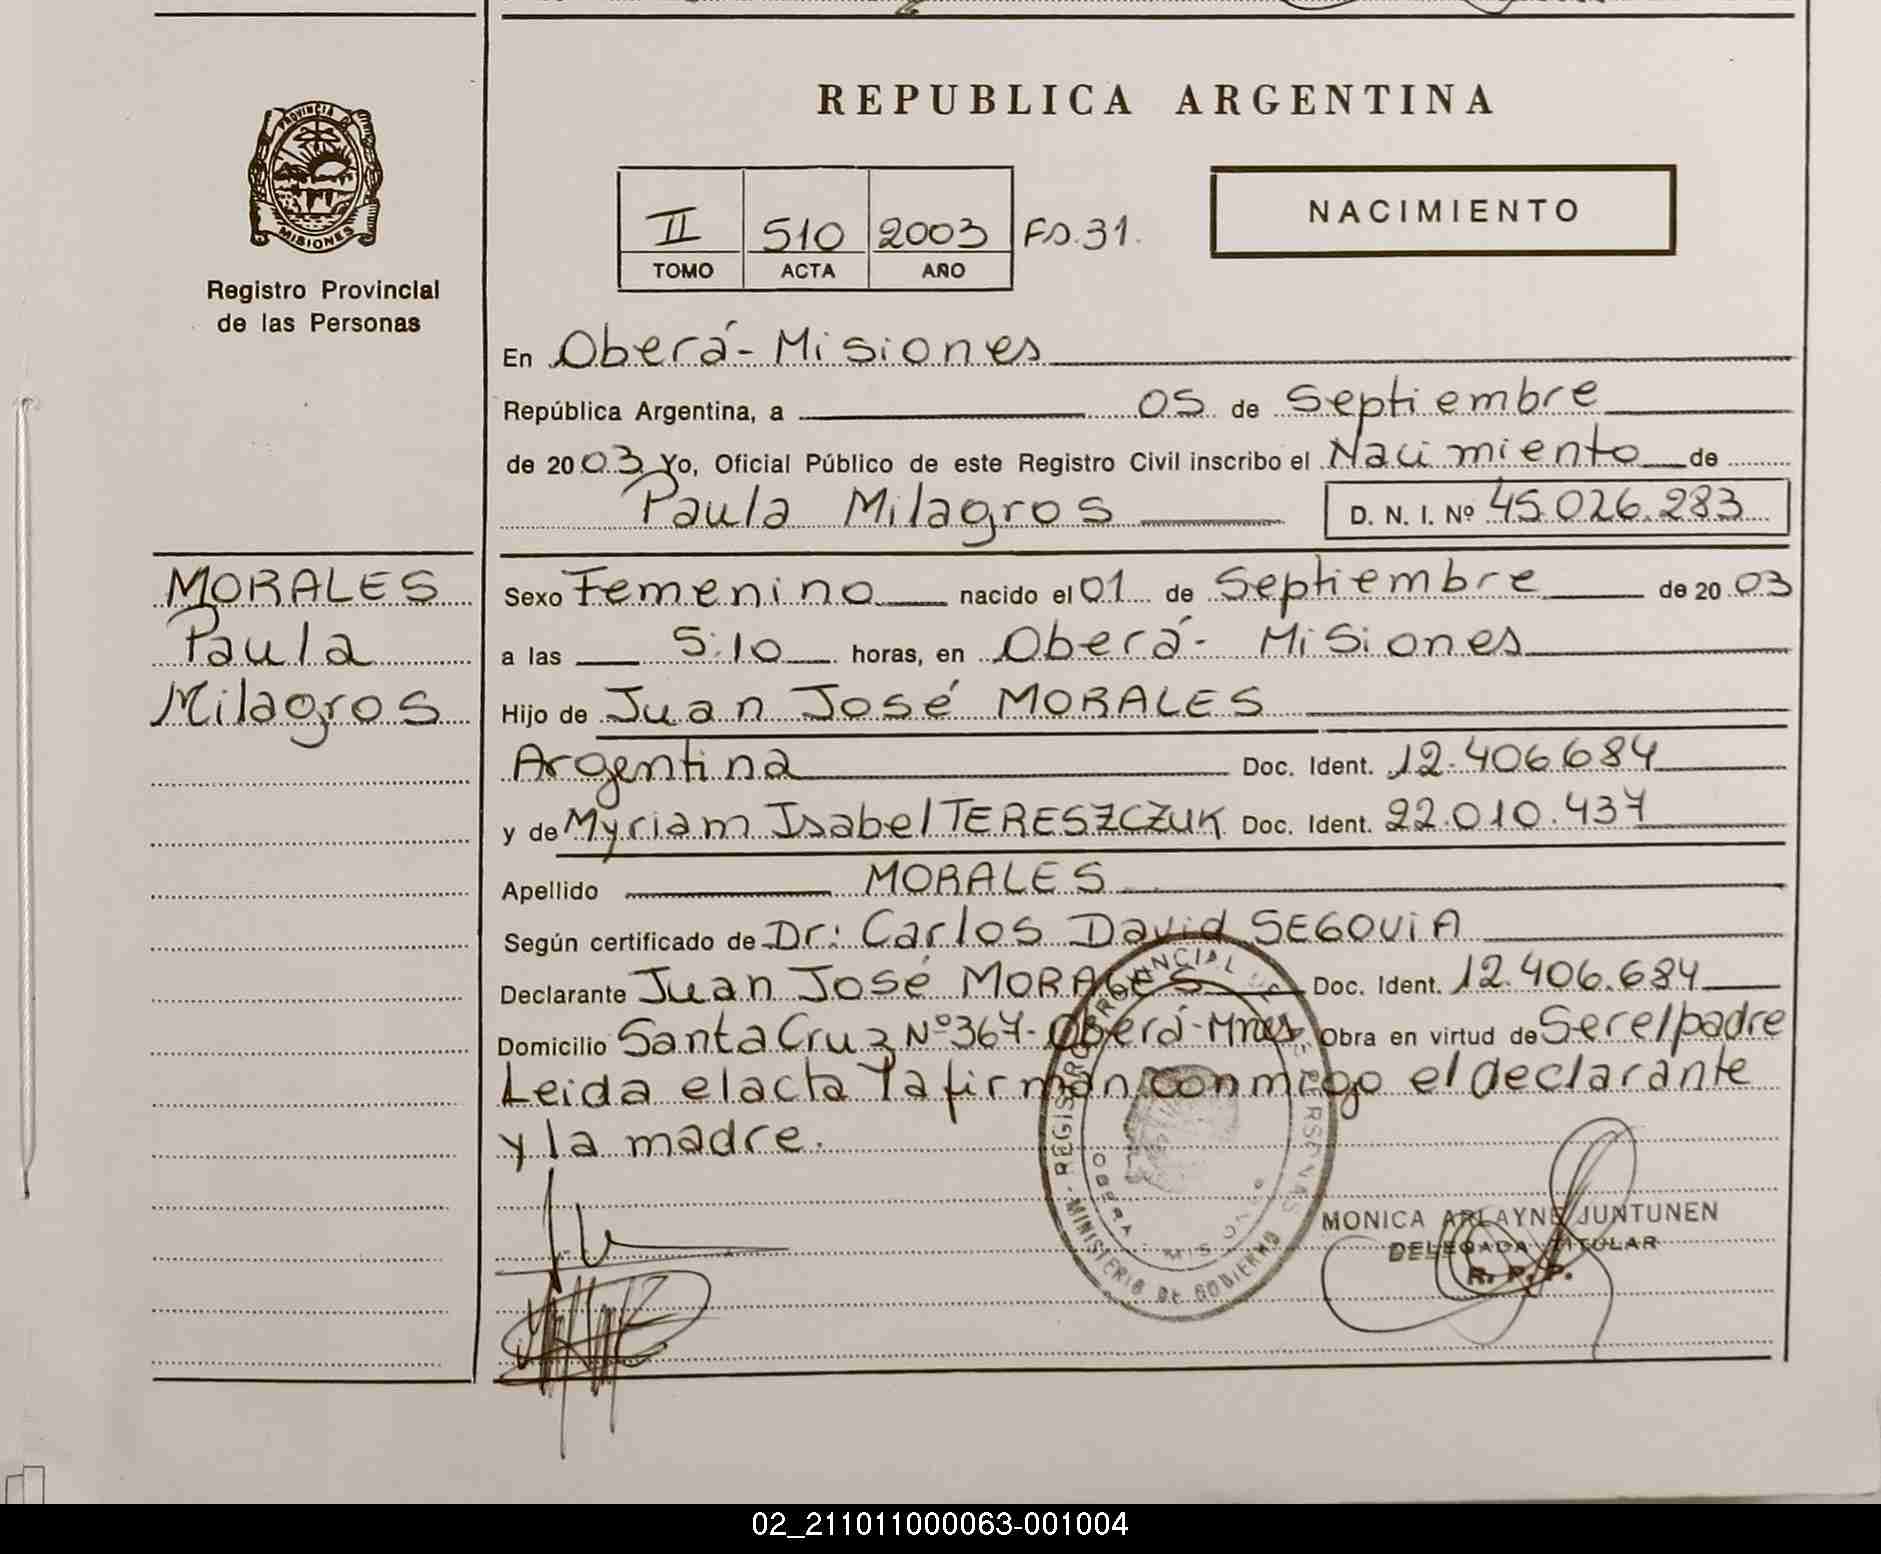 REPUBLICA ARGENTINA
PROVINCIA DE
MISIONES
Registro Provincial
de las Personas
II 510 2003 Fº.31.
TOMO ACTA AÑO
NACIMIENTO
En Oberá - Misiones
República Argentina, a 05 de Septiembre
de 2003 Yo, Oficial Público de este Registro Civil inscribo el Nacimiento de
Paula Milagros D. N. I. Nº 45.026.283
MORALES
Paula
Milagros
Sexo Femenino nacido el 01 de Septiembre de 2003
a las 5:10 horas, en Oberá - Misiones
Hijo de Juan José MORALES
Argentina Doc. Ident. 12.406.684
y de Myriam Isabel TERESZCZUK Doc. Ident. 22.010.437
Apellido MORALES
Según certificado de Dr: Carlos David SEGOVIA
Declarante Juan José MORALES Doc. Ident. 12.406.684
Domicilio Santa Cruz Nº 367 - Oberá - Mnes Obra en virtud de Ser el padre
Leida el acta la firman conmigo el declarante
y la madre.
REGISTRO PROVINCIAL DE LAS PERSONAS
OBERA - MISIONES
MINISTERIO DE GOBIERNO
MONICA ARLAYNE JUNTUNEN
DELEGADA TITULAR
R. P. P.
02_211011000063-001004